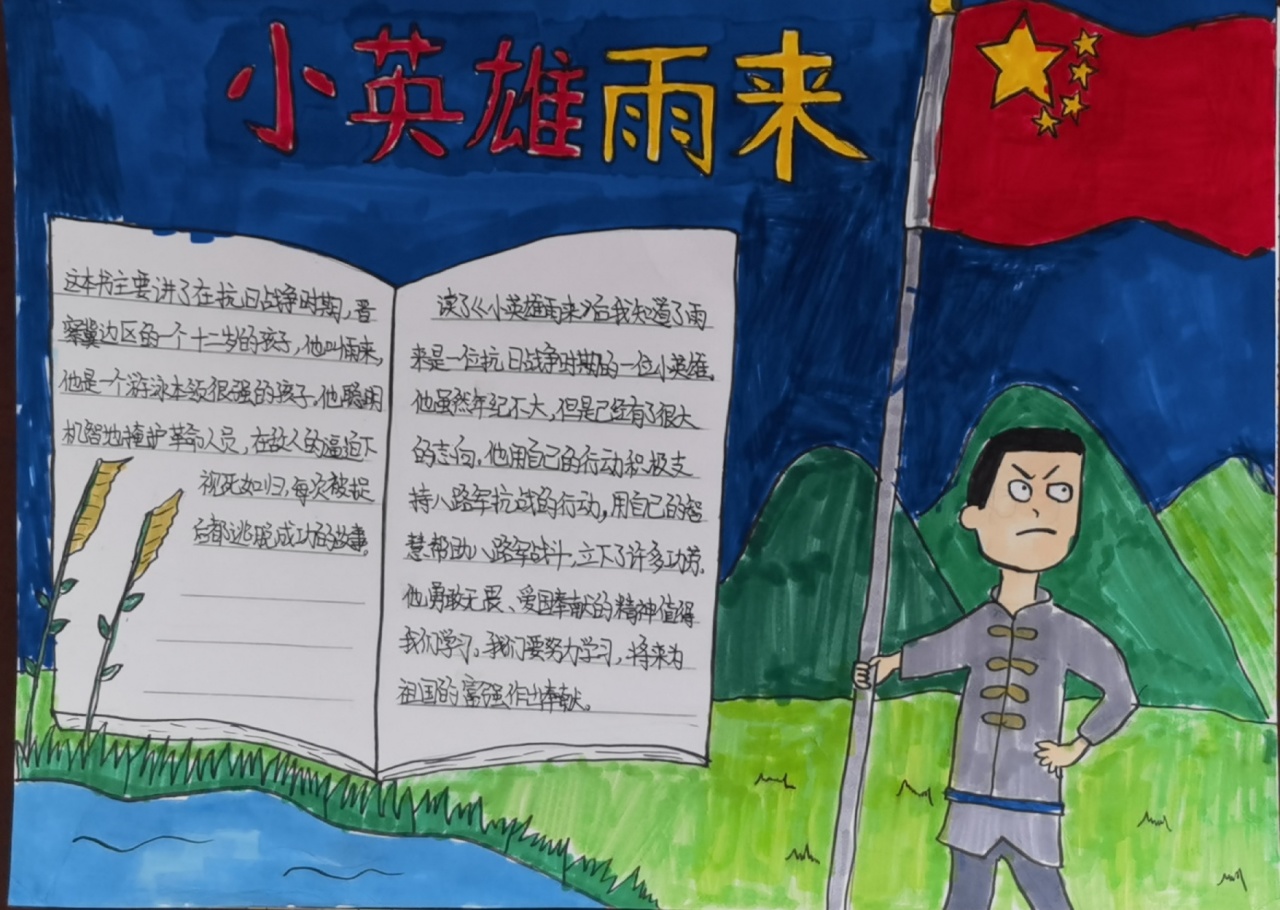 小英雄雨来
这本书主要讲了在抗日战争时期，晋
察冀边区的一个十二岁的孩子，他叫雨来，
他是一个游泳本领很强的孩子。他聪明
机智地掩护革命人员，在敌人的逼迫下
视死如归，每次被捉
后都逃脱成功的故事。
读了《小英雄雨来》后我知道了雨
来是一位抗日战争时期的一位小英雄。
他虽然年纪不大，但是已经有了很大
的志向。他用自己的行动积极支
持八路军抗战的行动，用自己的智
慧帮助八路军战斗，立下了许多功劳。
他勇敢无畏、爱国奉献的精神值得
我们学习。我们要努力学习，将来为
祖国的富强作出奉献。